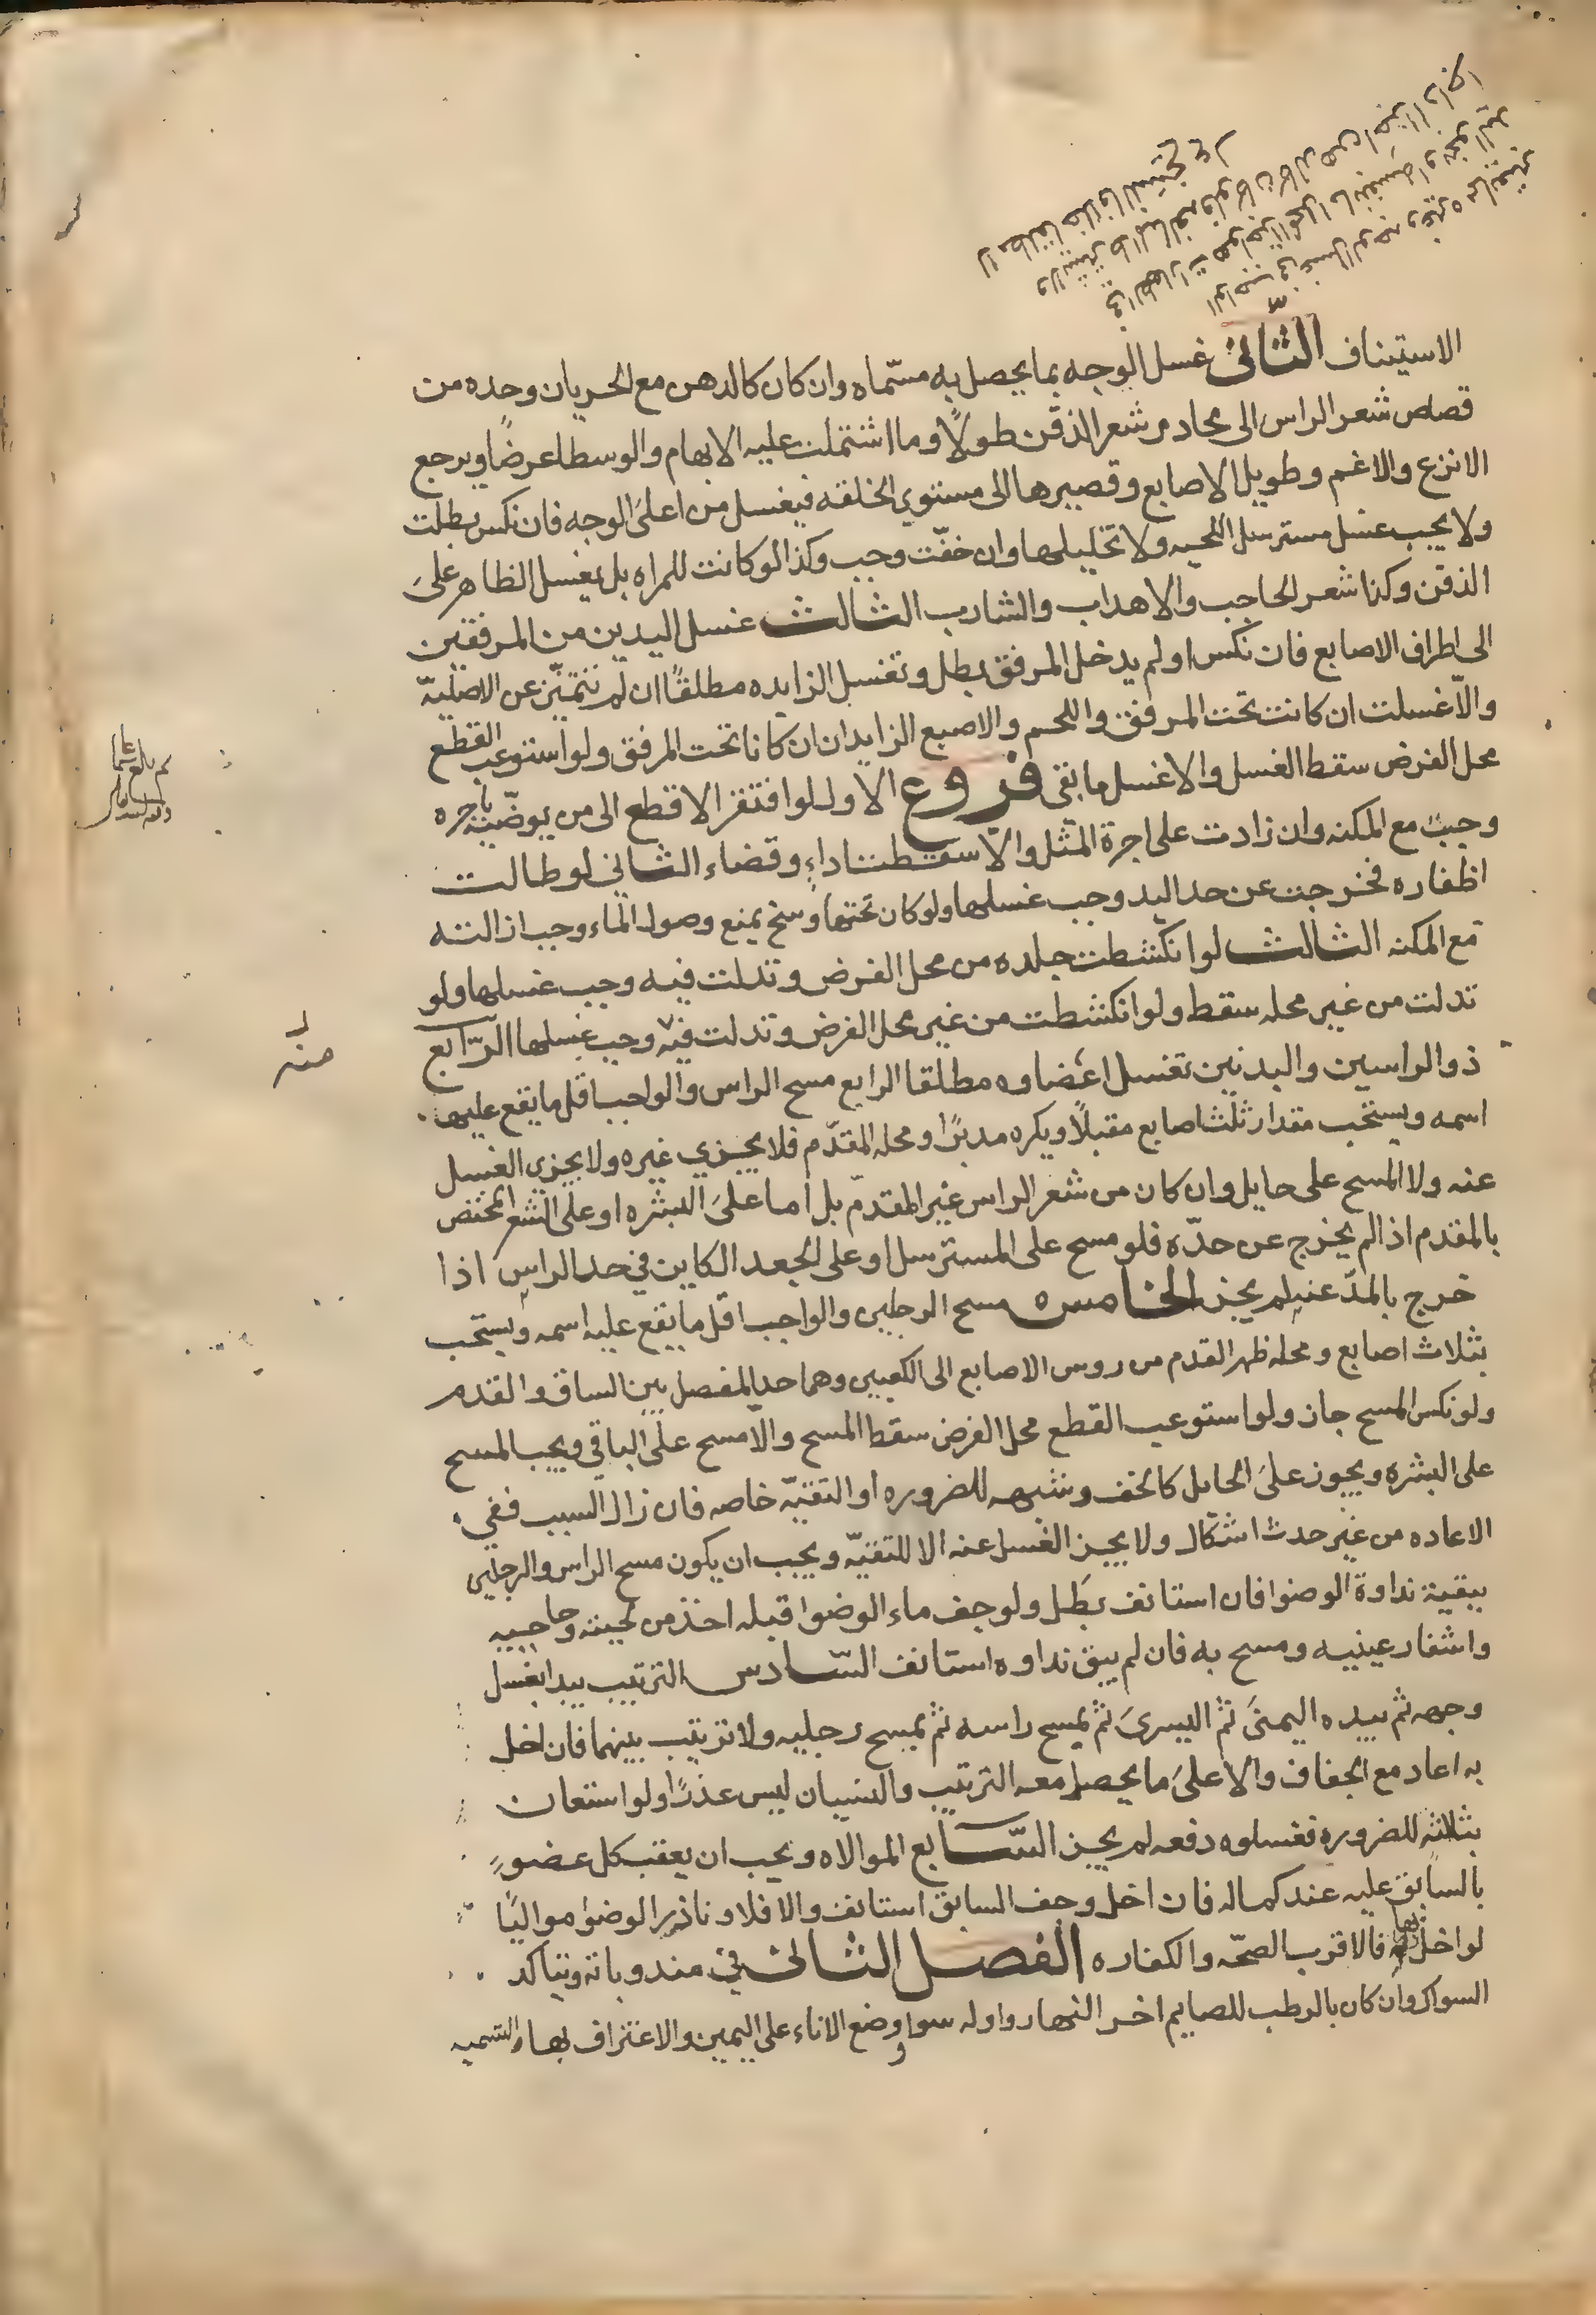 الاستيناف الثاني غسل الوجه بما يحصل به مسمّاه وان كان كالدهن مع الجريان وحده من
قصاص شعر الراس الى محادر شعر الذقن طولًا وما اشتملت عليه الابهام والوسطا عرضًا ويرجع
الانزع والاغم وطويل الاصابع وقصيرها الى مستوي الخلقه فيغسل من اعلى الوجه فان نكس بطلت
ولا يجب غسل مسترسل اللحيه ولا تخليلها وان خفّت وجب وكذا لو كانت للمراه بل يغسل الظاهر على
الذقن وكذا شعر الحاجب والاهداب والشارب الثالث غسل اليدين من المرفقين
الى اطراف الاصابع فان نكس او لم يدخل المرفق بطل وتغسل الزايده مطلقًا ان لم تتميّز عن الاصليّه
والّا غسلت ان كانت تحت المرفق واللحم والاصبع الزايدان ان كانا تحت المرفق ولو استوعب القطع
محل الفرض سقط الغسل والا غسل ما بقى فروع الاول لو افتقر الاقطع الى من يوضّيه باجره
وجبت مع المكنه وان زادت على اجرة المثل والّا سقطت اداء وقضاء الثاني لو طالت
اظفاره فخرجت عن حد اليد وجب غسلها ولو كان تحتها وسخ يمنع وصول الماء وجب ازالته
مع المكنه الثالث لو انكشطت جلده من محل الفرض وتدلت فيه وجب غسلها ولو
تدلت من غير محله سقط ولو انكشطت من غير محل الفرض وتدلت فيه وجب غسلها الرّابع
ذو الراسين والبدنين تغسل اعضاوه مطلقا الرابع مسح الراس والواجب اقل ما يقع عليه
اسمه ويستحب مقدار ثلث اصابع مقبلًا ويكره مدبرًا ومحله المقدّم فلا يجزي غيره ولا يجزي الغسل
عنه ولا المسح على حايل وان كان من شعر الراس غير المقدّم بل اما على البشره او على الشعر المختص
بالمقدم اذا لم يخرج عن حدّه فلو مسح على المسترسل او على الجعد الكاين في حد الراس اذا
خرج بالمدّ عنه لم يجز الخامس مسح الرجلين والواجب اقل ما يقع عليه اسمه ويستحب
بثلاث اصابع ومحله ظهر القدم من روس الاصابع الى الكعبين وهما حد المفصل بين الساق والقدم
ولو نكس المسح جاز ولو استوعب القطع محل الفرض سقط المسح والا مسح على الباقي ويجب المسح
على البشره ويجوز على الحايل كالخف وشبهه للضروره او التقيّه خاصه فان زال السبب ففي
الاعاده من غير حدث اشكال ولا يجز الغسل عنه الا للتقيّه ويجب ان يكون مسح الراس والرجلين
ببقية نداوة الوضوا فان استانف بطل ولو جف ماء الوضوا قبله اخذ من لحيته وحاجبيه
واشفار عينيه ومسح به فان لم يبق نداوه استانف السّادس الترتيب يبدا بغسل
وجهه ثم بيده اليمنى ثم اليسرى ثم يمسح راسه ثم يمسح رجليه ولا ترتيب بينهما فان اخل
به اعاد مع الجفاف والا على ما يحصل معه الترتيب والنسيان ليس عذرًا ولو استعان
بثلاثه للضروره فغسلوه دفعه لم يجز السّابع الموالاه ويجب ان يعقب كل عضوٍ
بالسابق عليه عند كماله فان اخل وجف السابق استانف والا فلا وناذر الوضوا مواليًا
لو اخل بها فالاقرب الصحّه والكفاره الفصل الثاني في مندوباته ويتاكد
السواك وان كان بالرطب للصايم اخر النهار واوله سوا ووضع الاناء على اليمين والاغتراف بها والتسميه
منه